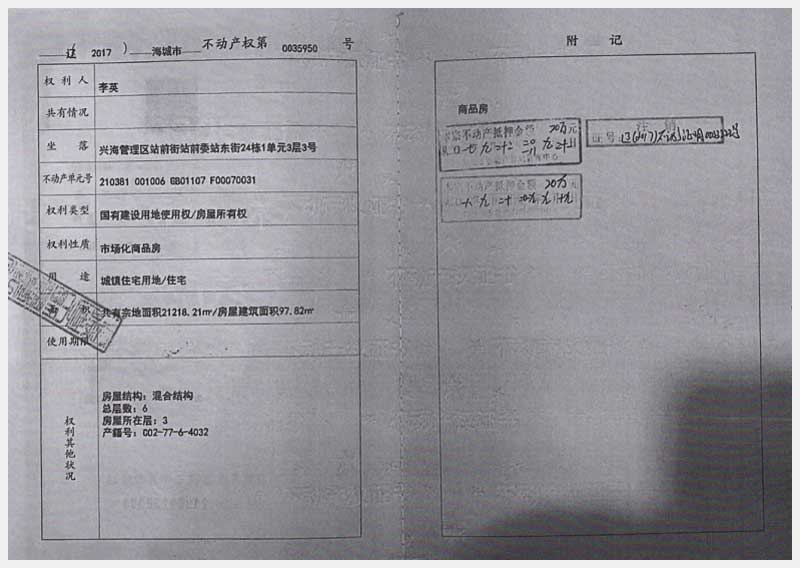 辽 2017 ) 海城市 不动产权第 0035950 号
权利人 李英
共有情况
坐落 兴海管理区站前街站前委站东街24栋1单元3层3号
不动产单元号 210381 001006 GB01107 F00070031
权利类型 国有建设用地使用权/房屋所有权
权利性质 市场化商品房
用途 城镇住宅用地/住宅
共有宗地面积21218.21㎡/房屋建筑面积97.82㎡
使用期限
权利其他状况
房屋结构：混合结构
总层数：6
房屋所在层：3
产籍号：G02-77-6-4032
附 记
商品房
不动产抵押金额 20万元
注 销
证号
不动产抵押金额 20万元